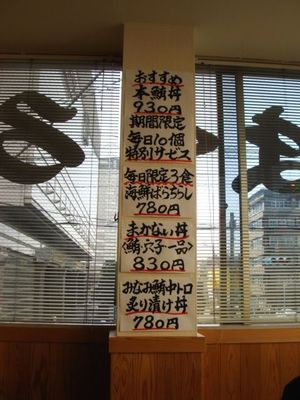 おすすめ
本鮪丼
930円
期間限定
毎日10個
特別サービス
毎日限定3食
海鮮ばらちらし
780円
まかない丼
〈鮪・穴子一品〉
830円
おなみ鮪中トロ
炙り漬け丼
780円